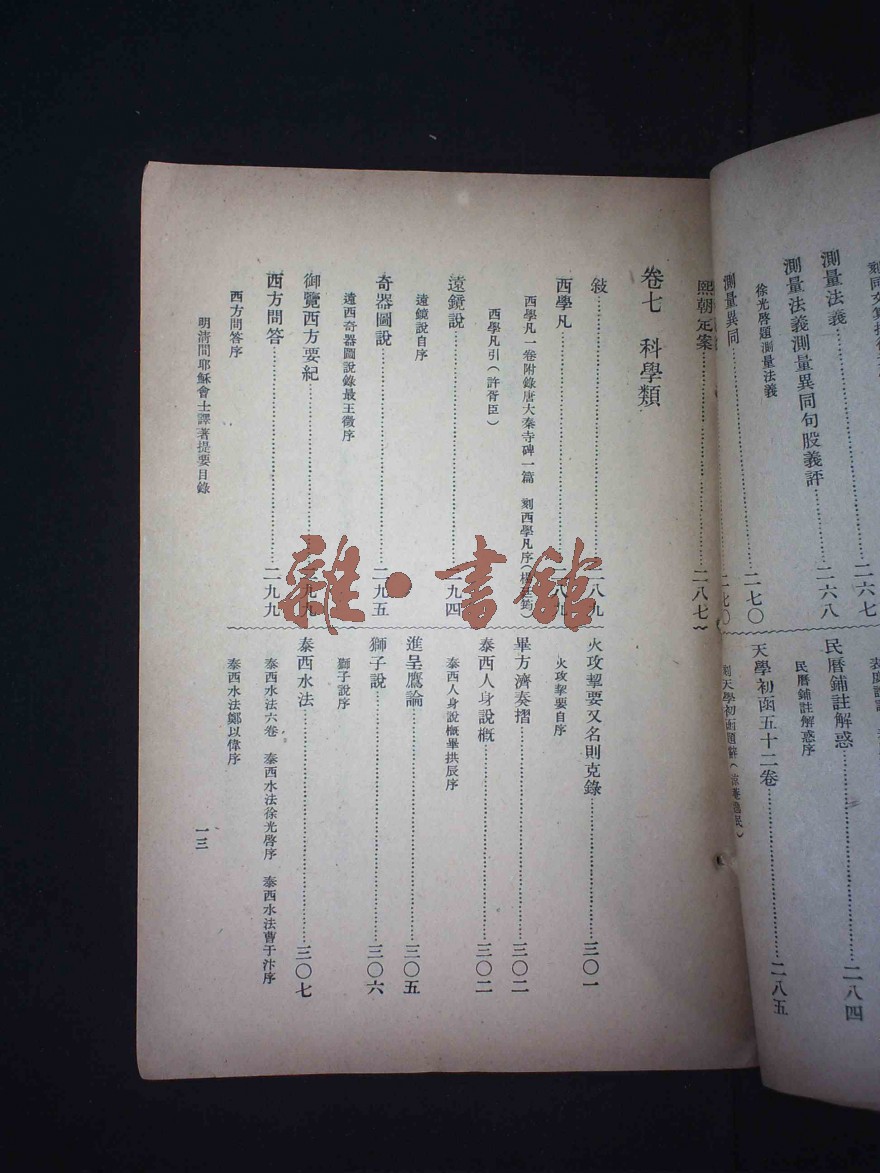 測量法義……二六八
測量法義測量異同句股義評
徐光啓題測量法義……二七〇
測量異同……二七〇
民曆鋪註解惑……二八四
民曆鋪註解惑序
天學初函五十二卷……二八五
熙朝定案……二八七
卷七 科學類
敍……二八九
西學凡……二八九
西學凡一卷附錄唐大秦寺碑一篇 刻西學凡序(楊廷筠)
西學凡引(許胥臣)
遠鏡說……二九四
遠鏡說自序
奇器圖說……二九五
遠西奇器圖說錄最王徵序
御覽西方要紀……二九九
西方問答……二九九
西方問答序
火攻挈要又名則克錄……三〇一
火攻挈要自序
畢方濟奏摺……三〇二
泰西人身說概……三〇二
泰西人身說概畢拱辰序
進呈鷹論……三〇五
獅子說……三〇六
獅子說序
泰西水法……三〇七
泰西水法六卷 泰西水法徐光啓序 泰西水法曹于汴序
泰西水法鄭以偉序
明清間耶穌會士譯著提要目錄
一三
雜·書館